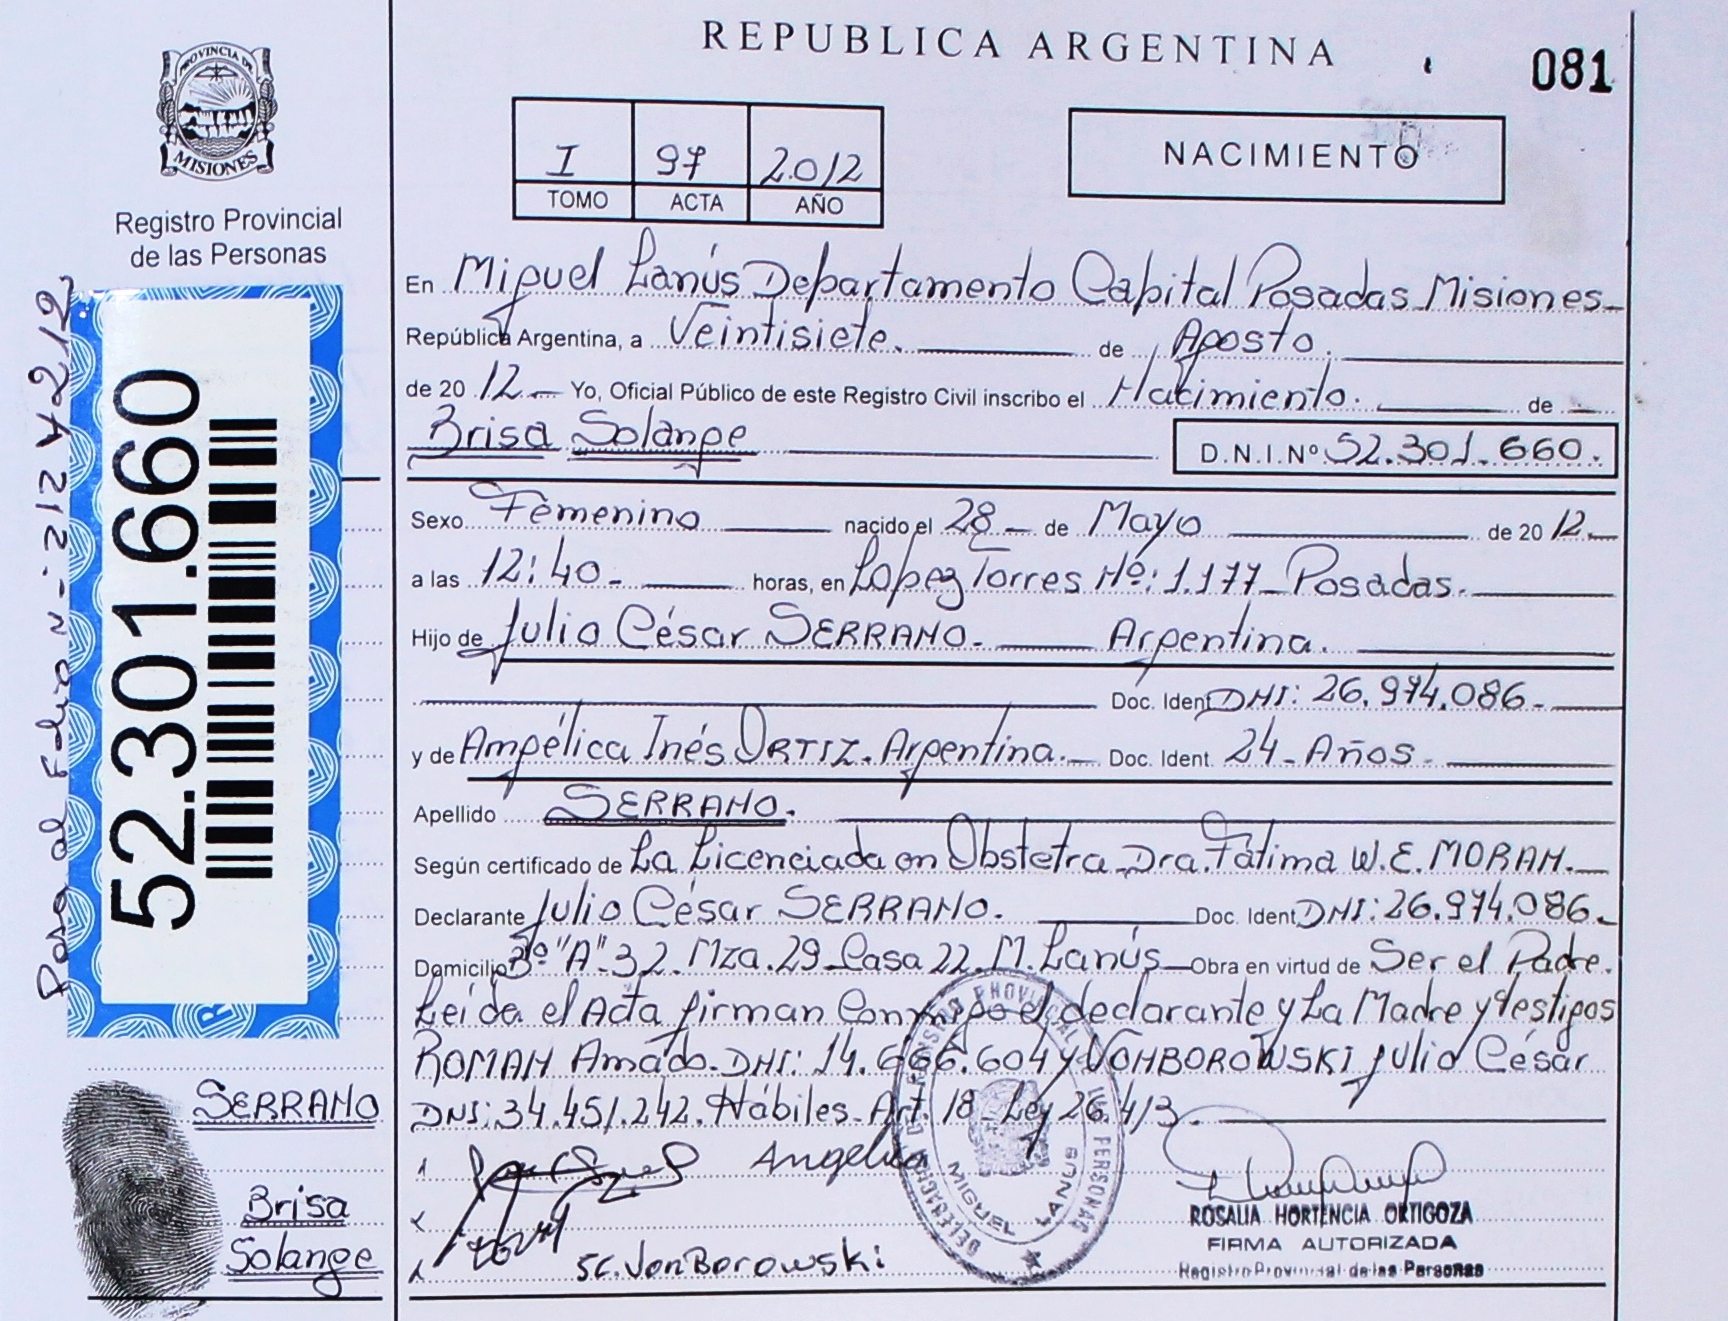 REPUBLICA ARGENTINA
081
PROVINCIA DE
MISIONES
Registro Provincial
de las Personas
I 97 2.012
TOMO ACTA AÑO
NACIMIENTO
En Miguel Lanús Departamento Capital Posadas Misiones
República Argentina, a Veintisiete. de Agosto.
de 20 12 Yo, Oficial Público de este Registro Civil inscribo el Nacimiento. de
Brisa Solange
D.N.I.Nº 52.301.660.
Sexo Femenino nacido el 28 de Mayo de 20 12
a las 12:40 horas, en Lopez Torres Nº: 1.177 Posadas.
Hijo de Julio César SERRANO. Argentina.
Doc. Ident DNI: 26.974.086
y de Angélica Inés ORTIZ. Argentina. Doc. Ident. 24 Años
Apellido SERRANO.
Según certificado de La Licenciada en Obstetra Dra. Fátima W.E. MORAN.
Declarante Julio César SERRANO. Doc. Ident DNI: 26.974.086
Domicilio 3º "A" 32. Mza. 29 Casa 22. M. Lanús Obra en virtud de Ser el Padre.
Leída el Acta firman Conmigo el declarante y La Madre y testigos
ROMAN Amado. DNI: 14.666.604 y VONBOROWSKI Julio César
DNI: 34.451.242. Hábiles Art. 18 Ley 26.413
Angelica
SC. VonBorowski
MIGUEL LANUS
ROSALIA HORTENCIA ORTIGOZA
FIRMA AUTORIZADA
Registro Provincial de las Personas
52.301.660
SERRANO
Brisa
Solange